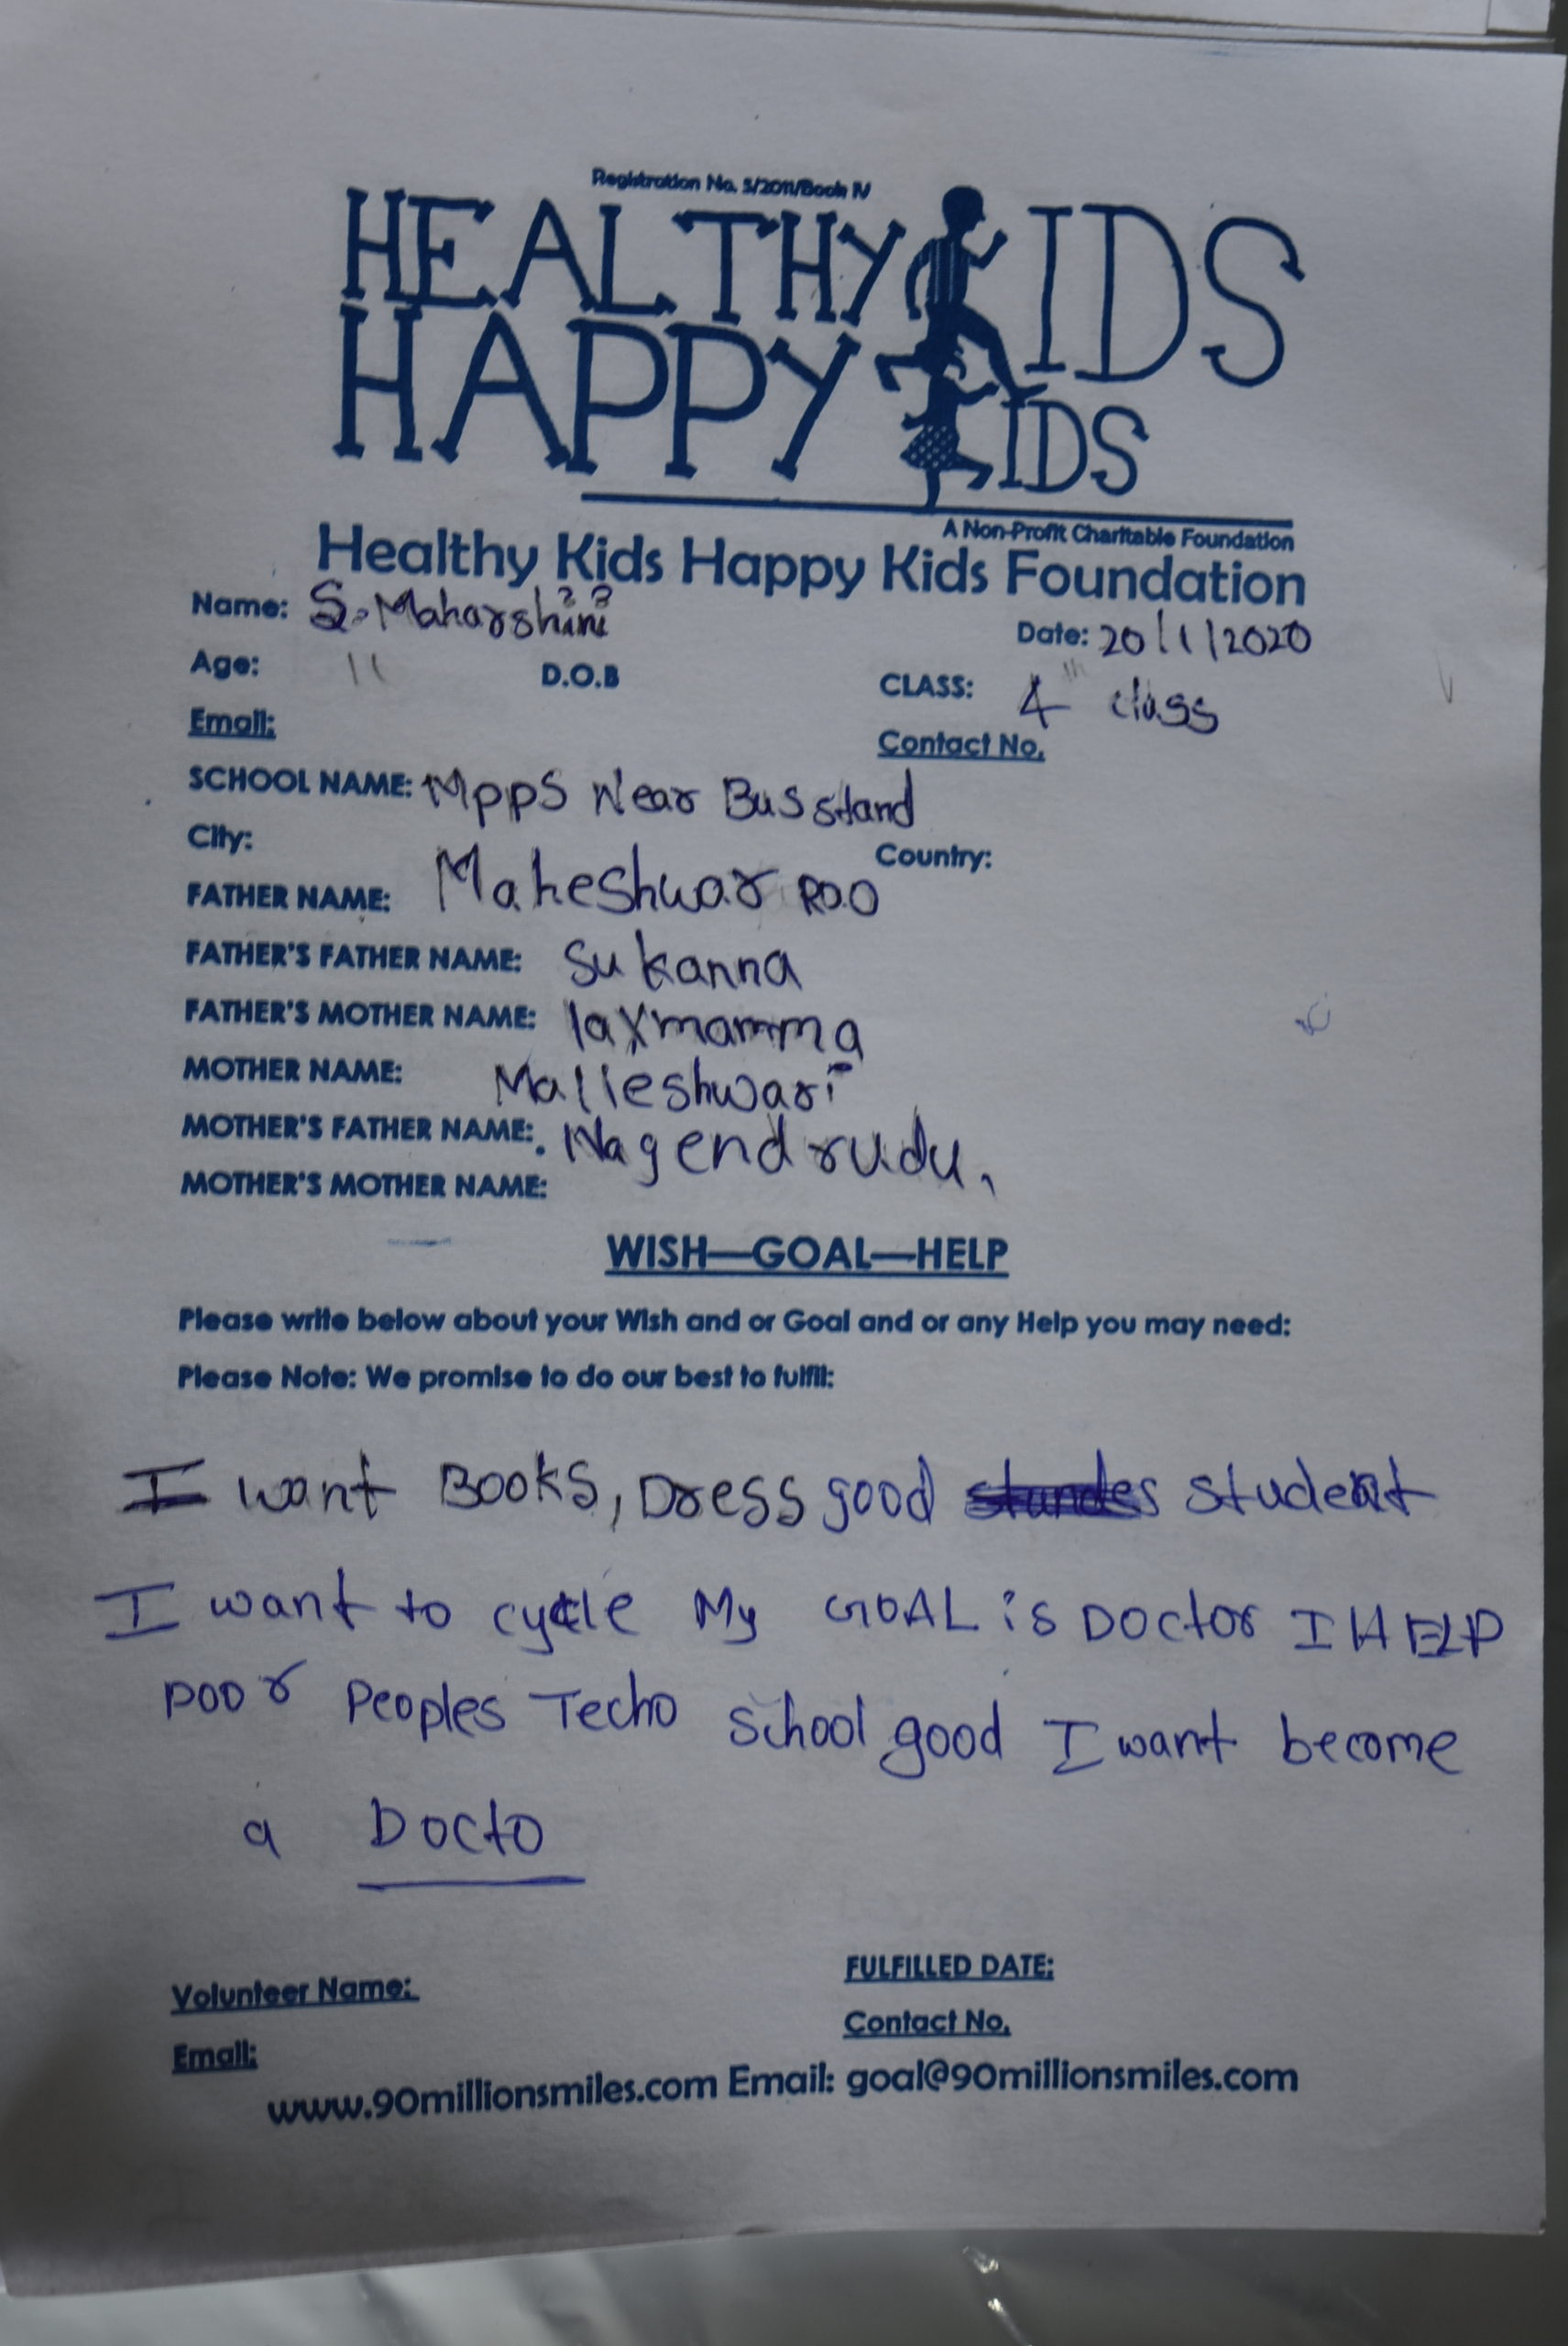 Registration No. 5/2011/Book IV
HEALTHY KIDS
HAPPY KIDS
A Non-Profit Charitable Foundation
Healthy Kids Happy Kids Foundation
Name: S. Maharshini
Date: 20/1/2020
Age: 11 D.O.B CLASS: 4th class
Email: Contact No.
SCHOOL NAME: MPPS Near Bus stand
City: Country:
FATHER NAME: Maheshwar Rao
FATHER'S FATHER NAME: Sukanna
FATHER'S MOTHER NAME: laxmamma
MOTHER NAME: Malleshwari
MOTHER'S FATHER NAME: Nagendrudu,
MOTHER'S MOTHER NAME:
WISH—GOAL—HELP
Please write below about your Wish and or Goal and or any Help you may need:
Please Note: We promise to do our best to fulfil:
I want Books, Dress good student
I want to cycle My GOAL is Doctor I HELP
poor Peoples Techo school good I want become
a Docto
Volunteer Name: FULFILLED DATE:
Email: Contact No.
www.90millionsmiles.com Email: goal@90millionsmiles.com